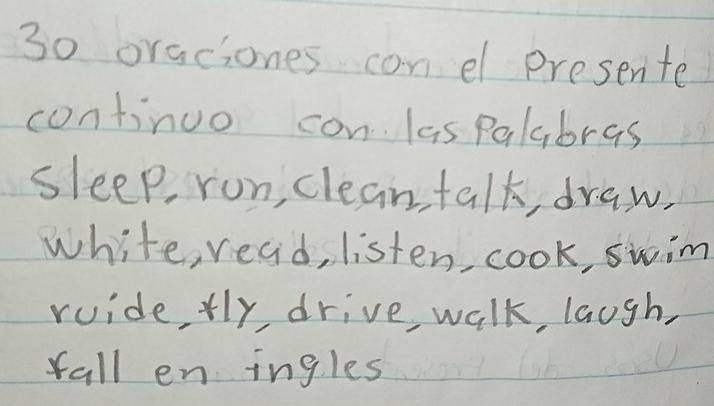 30 oraciones con el presente
continuo con las palabras
sleep, run, clean, talk, draw,
white, read, listen, cook, swim
ruide, fly, drive, walk, laugh,
fall en ingles